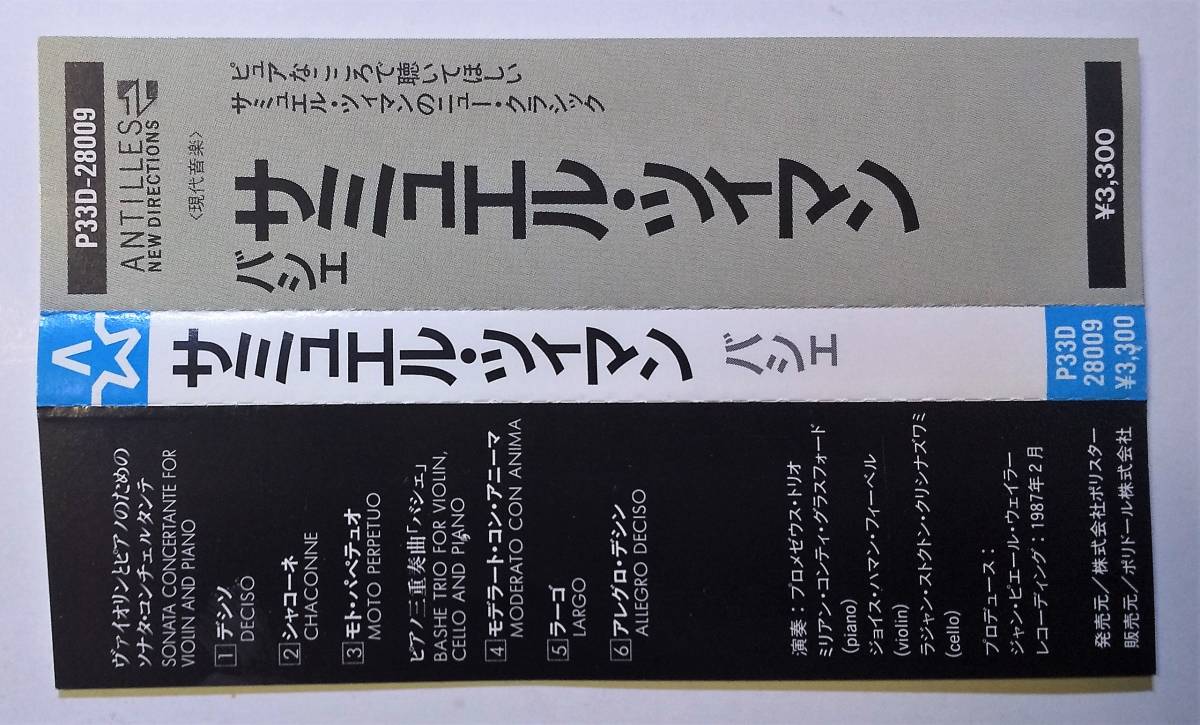 P33D-28009
ANTILLES
NEW DIRECTIONS
〈現代音楽〉
ピュアなこころで聴いてほしい
サミュエル・ツイマンのニュー・クラシック
サミュエル・ツイマン
バシェ
¥3,300
サミュエル・ツイマン
バシェ
P33D
28009
¥3,300
ヴァイオリンとピアノのための
ソナタ・コンチェルタンテ
SONATA CONCERTANTE FOR
VIOLIN AND PIANO
1 デシソ
DECISO
2 シャコーネ
CHACONNE
3 モト・パペテュオ
MOTO PERPETUO
ピアノ三重奏曲「バシェ」
BASHE TRIO FOR VIOLIN,
CELLO AND PIANO
4 モデラート・コン・アニーマ
MODERATO CON ANIMA
5 ラーゴ
LARGO
6 アレグロ・デシン
ALLEGRO DECISO
演奏：プロメゼウス・トリオ
ミリアン・コンティ・グラスフォード
(piano)
ジョイス・ハマン・フィーベル
(violin)
ラジャン・ストクトン・クリシナズワミ
(cello)
プロデュース：
ジャン・ピエール・ウェイラー
レコーディング：1987年2月
発売元／株式会社ポリスター
販売元／ポリドール株式会社